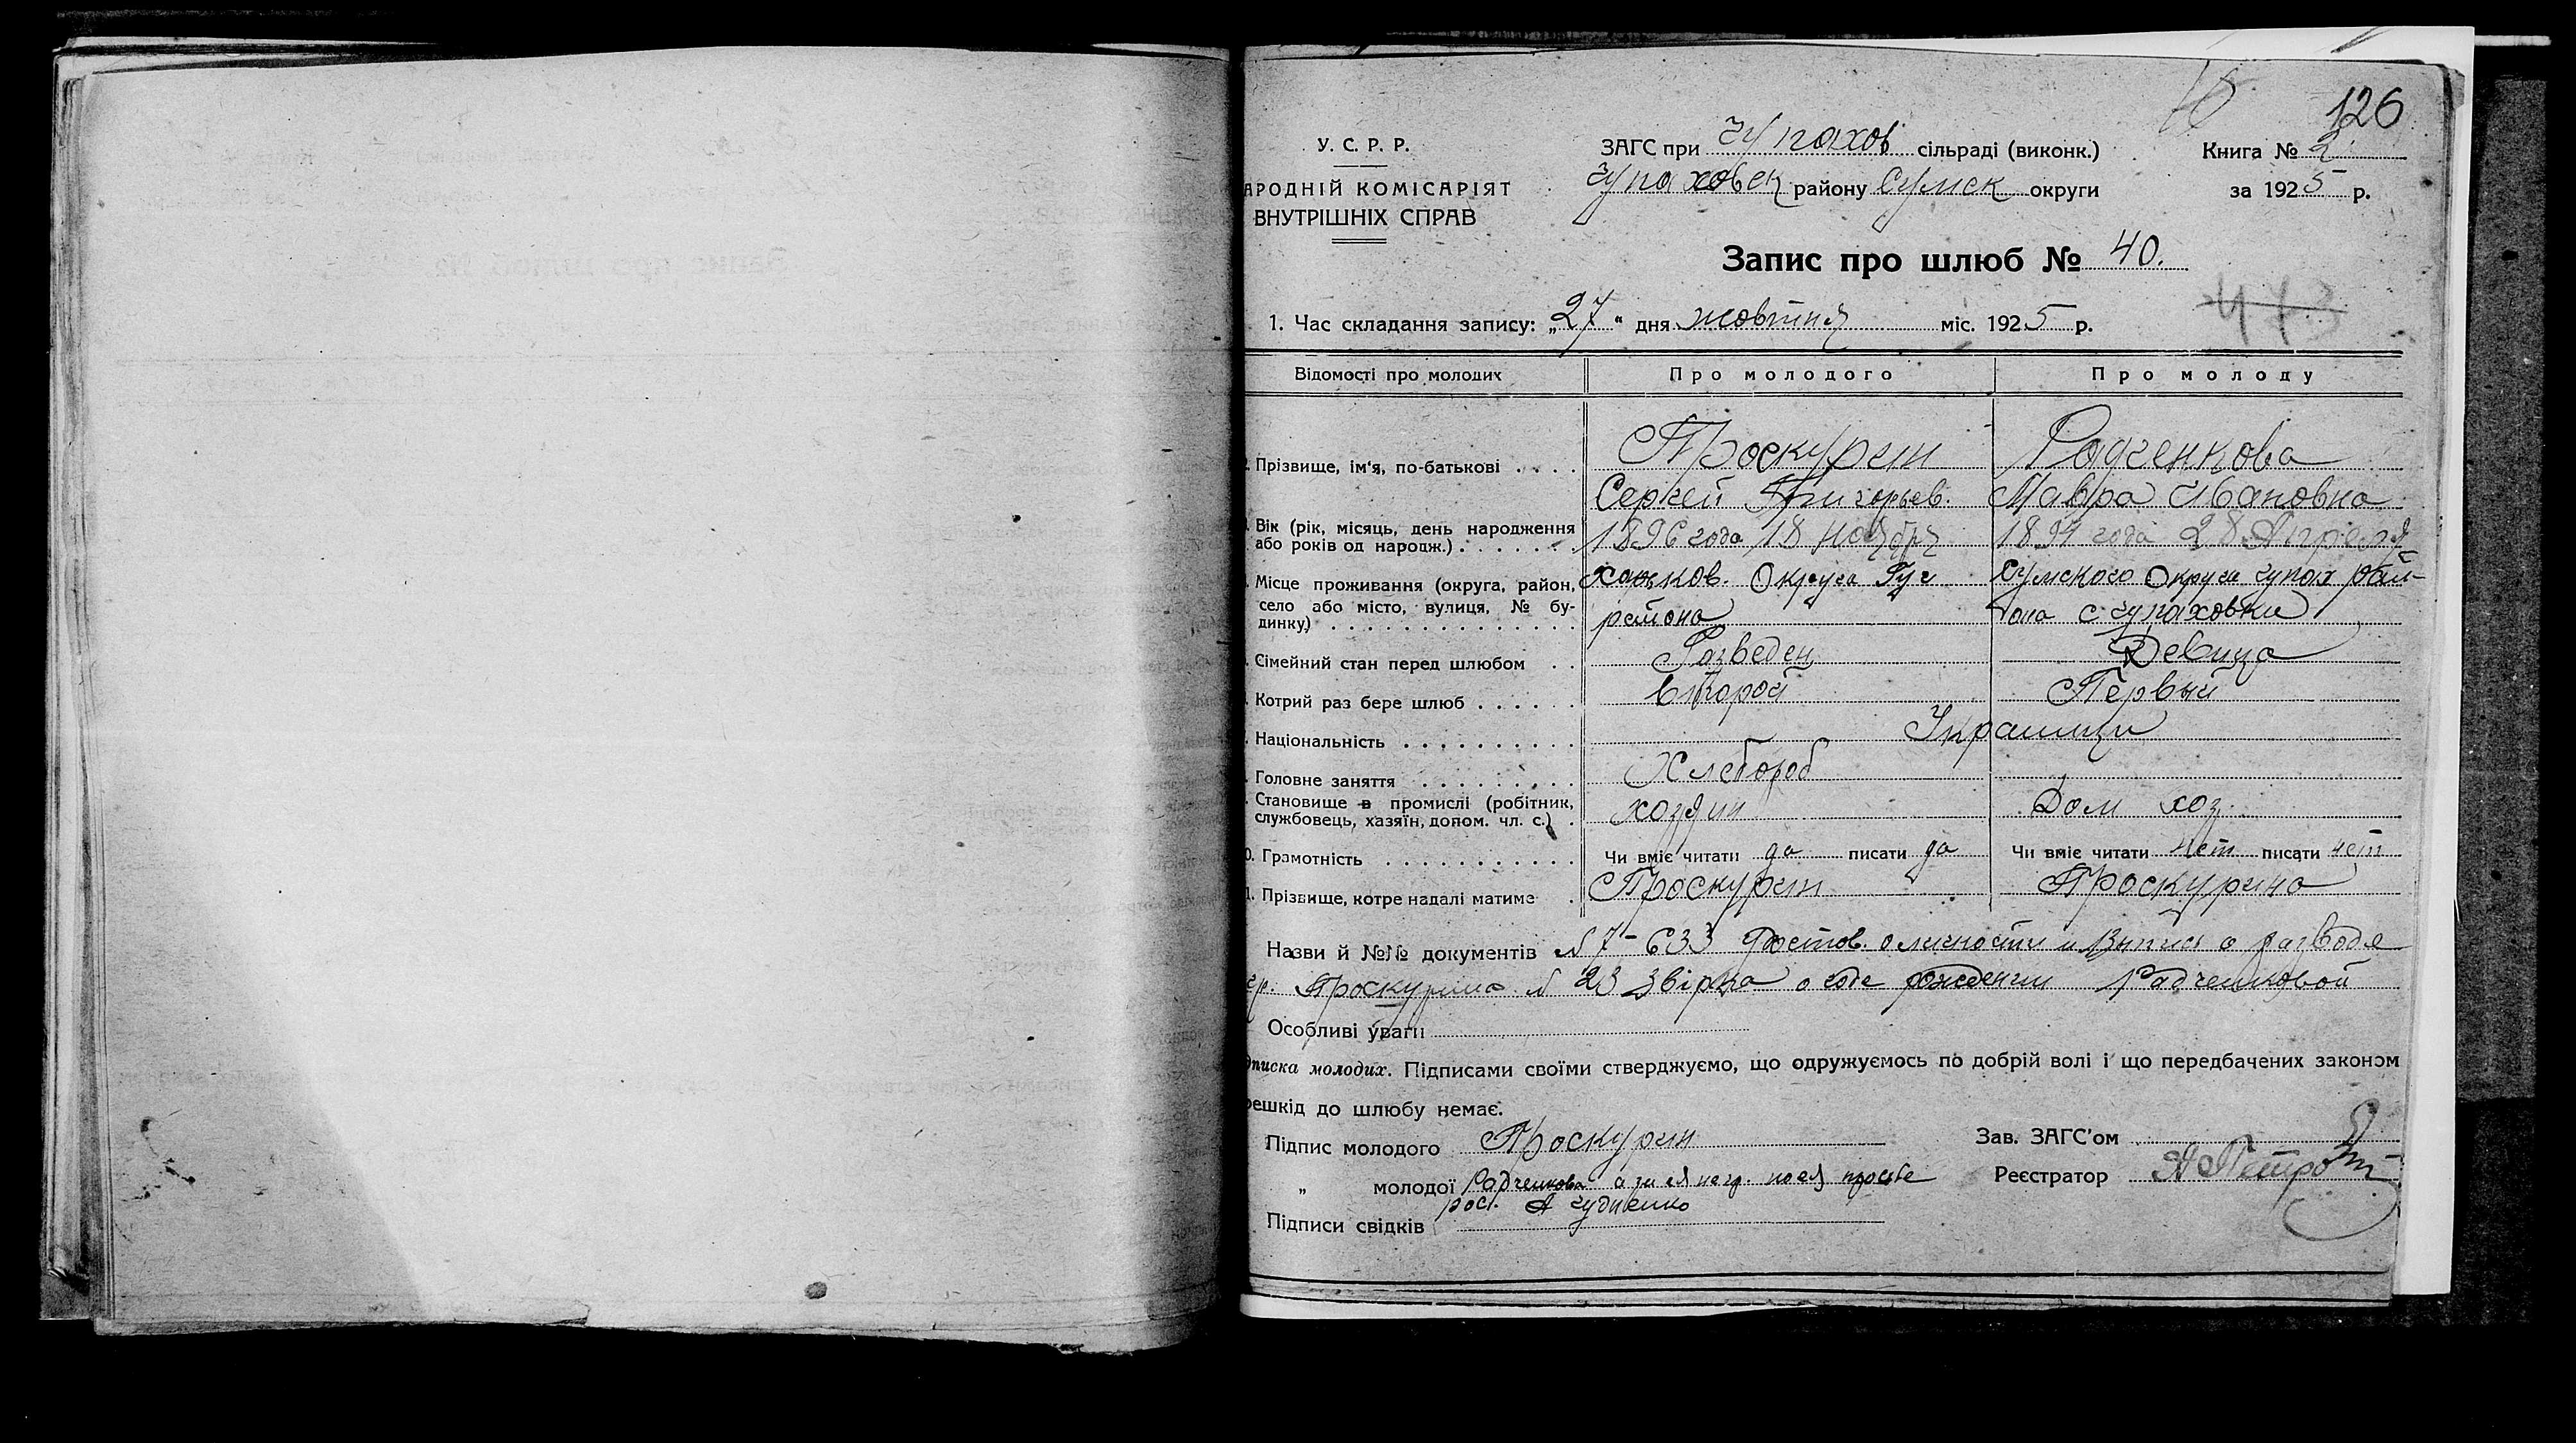 126
У. С. Р. Р.
АРОДНІЙ КОМІСАРІЯТ
ВНУТРІШНІХ СПРАВ
ЗАГС при Чупахов сільраді (виконк.)
Чупаховск району Сумск округи
Книга № 2
за 1925 р.
Запис про шлюб № 40.
473
1. Час складання запису: „27" дня жовтня міс. 1925 р.
Відомості про молодих Про молодого Про молоду
Прізвище, ім'я, по-батькові . . . . Проскурин Радченкова
Сергей Григорьев. Мавра Ивановна
Вік (рік, місяць, день народження або років од народж.) . . . . . . 1896 года 18 Ноября 1894 года 28 Апреля
Місце проживання (округа, район, Харьков. Округа Сумского Округи Чупах рай-
село або місто, вулиця, № бу-
динку) . . . . . . . . . . . . . района она с Чупаховки
Сімейний стан перед шлюбом . . Разведен Девица
Котрий раз бере шлюб . . . . . . Второй Первый
Національність . . . . . . . . . . Украинци
Головне заняття . . . . . . . . . Хлебороб
Становище в промислі (робітник,
службовець, хазяїн, допом. чл. с.) . хозяин Дом хоз.
0. Грамотність . . . . . . . . . . . Чи вміє читати да писати да Чи вміє читати нет писати нет
1. Прізвище, котре надалі матиме . Проскурин Проскурина
Назви й №№ документів № 7-633 о личности и Выпись о разводе
гр. Проскурина № 23 Звірка о годе рождении Радченковой
Особливі уваги
дписка молодих. Підписами своїми стверджуємо, що одружуємось по добрій волі і що передбачених законом
решкід до шлюбу немає.
Підпис молодого Проскурин
Зав. ЗАГС'ом
„ молодої Радченкова а за ея негр. по ея прозьбе
Реєстратор
рос. А Чудненко
Підписи свідків